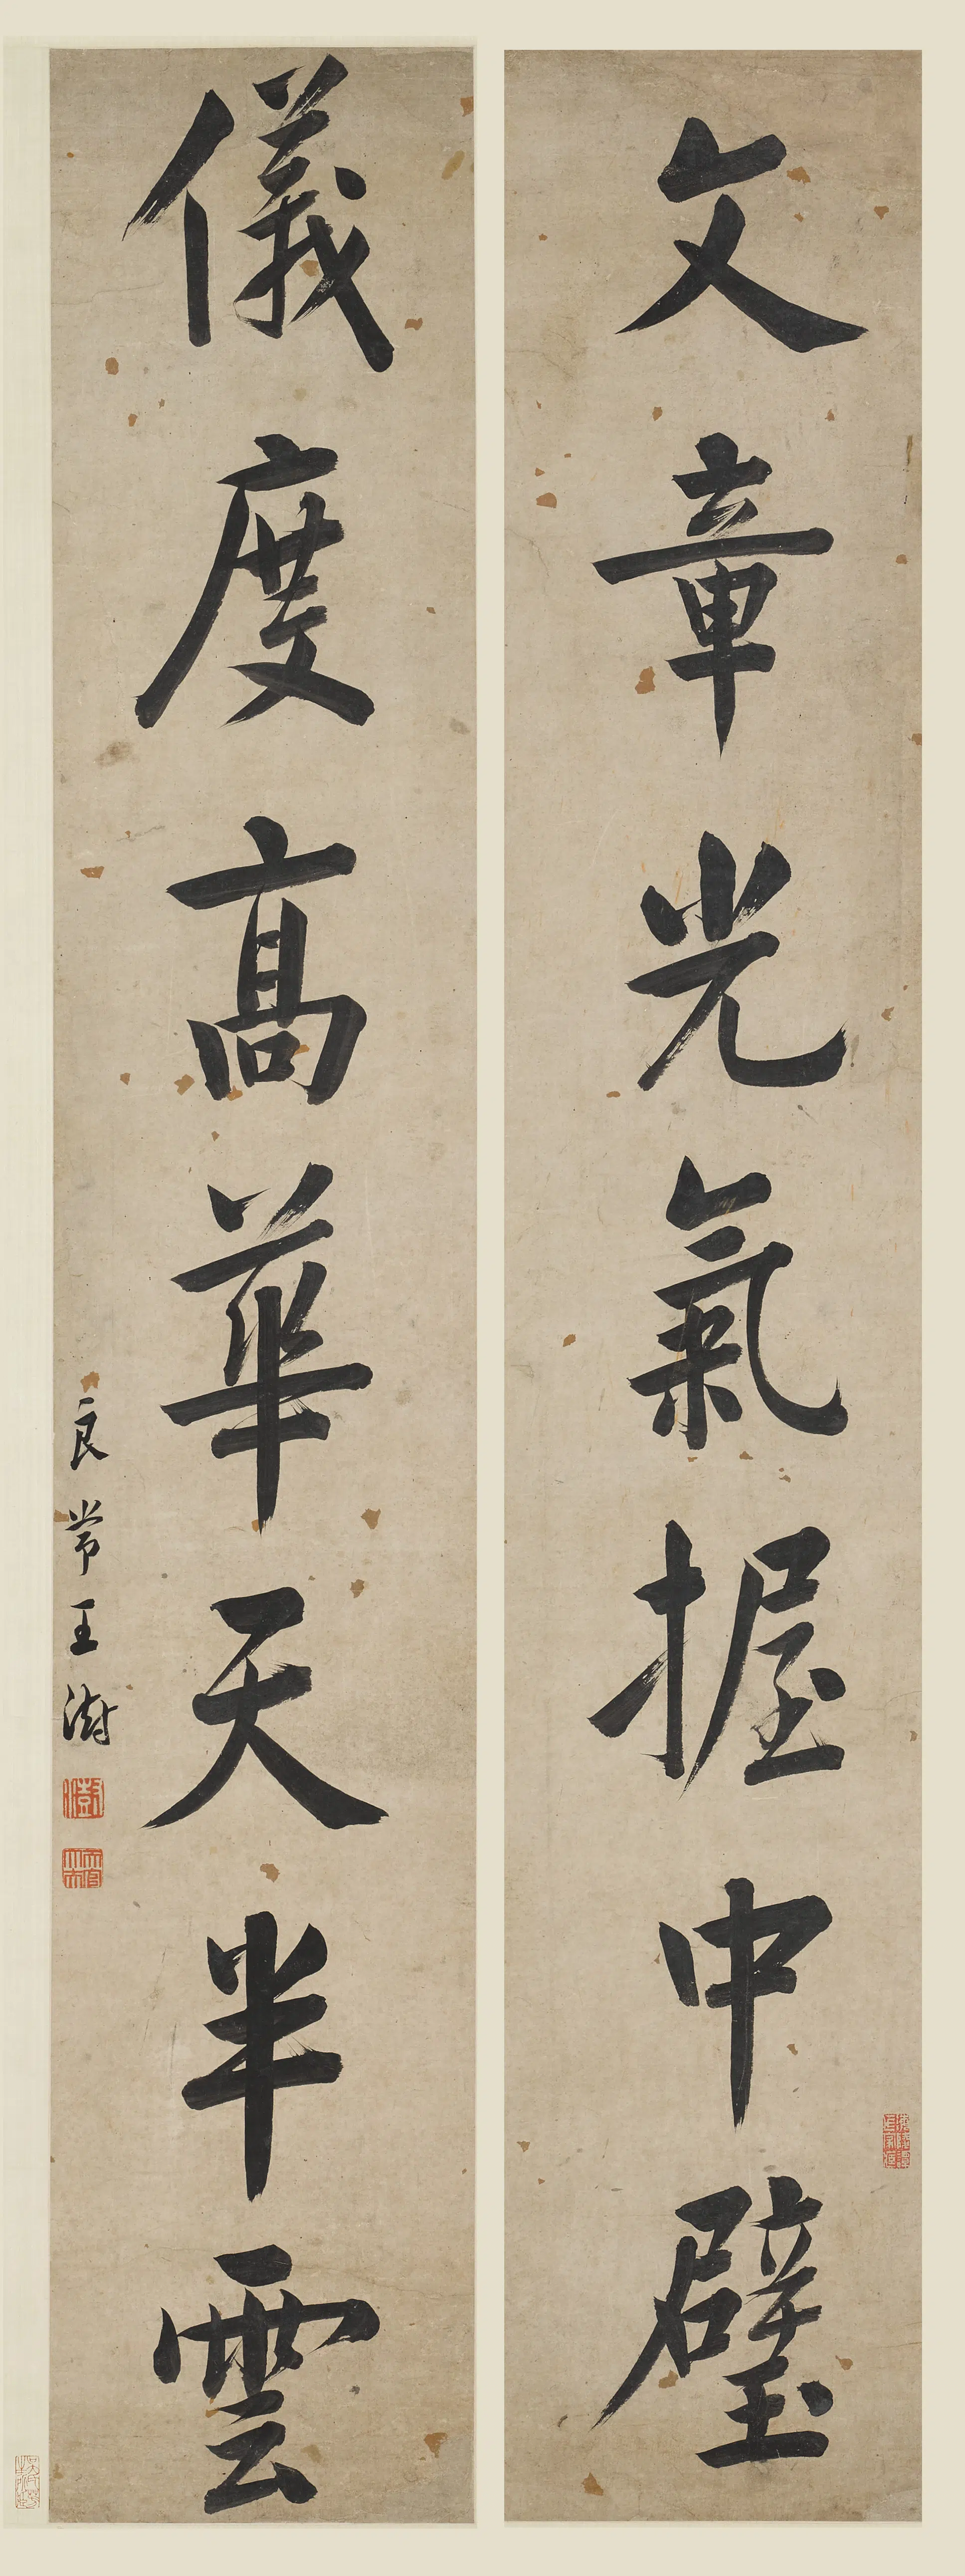 文章光氣握中璧
儀度高華天半雲
良常王澍